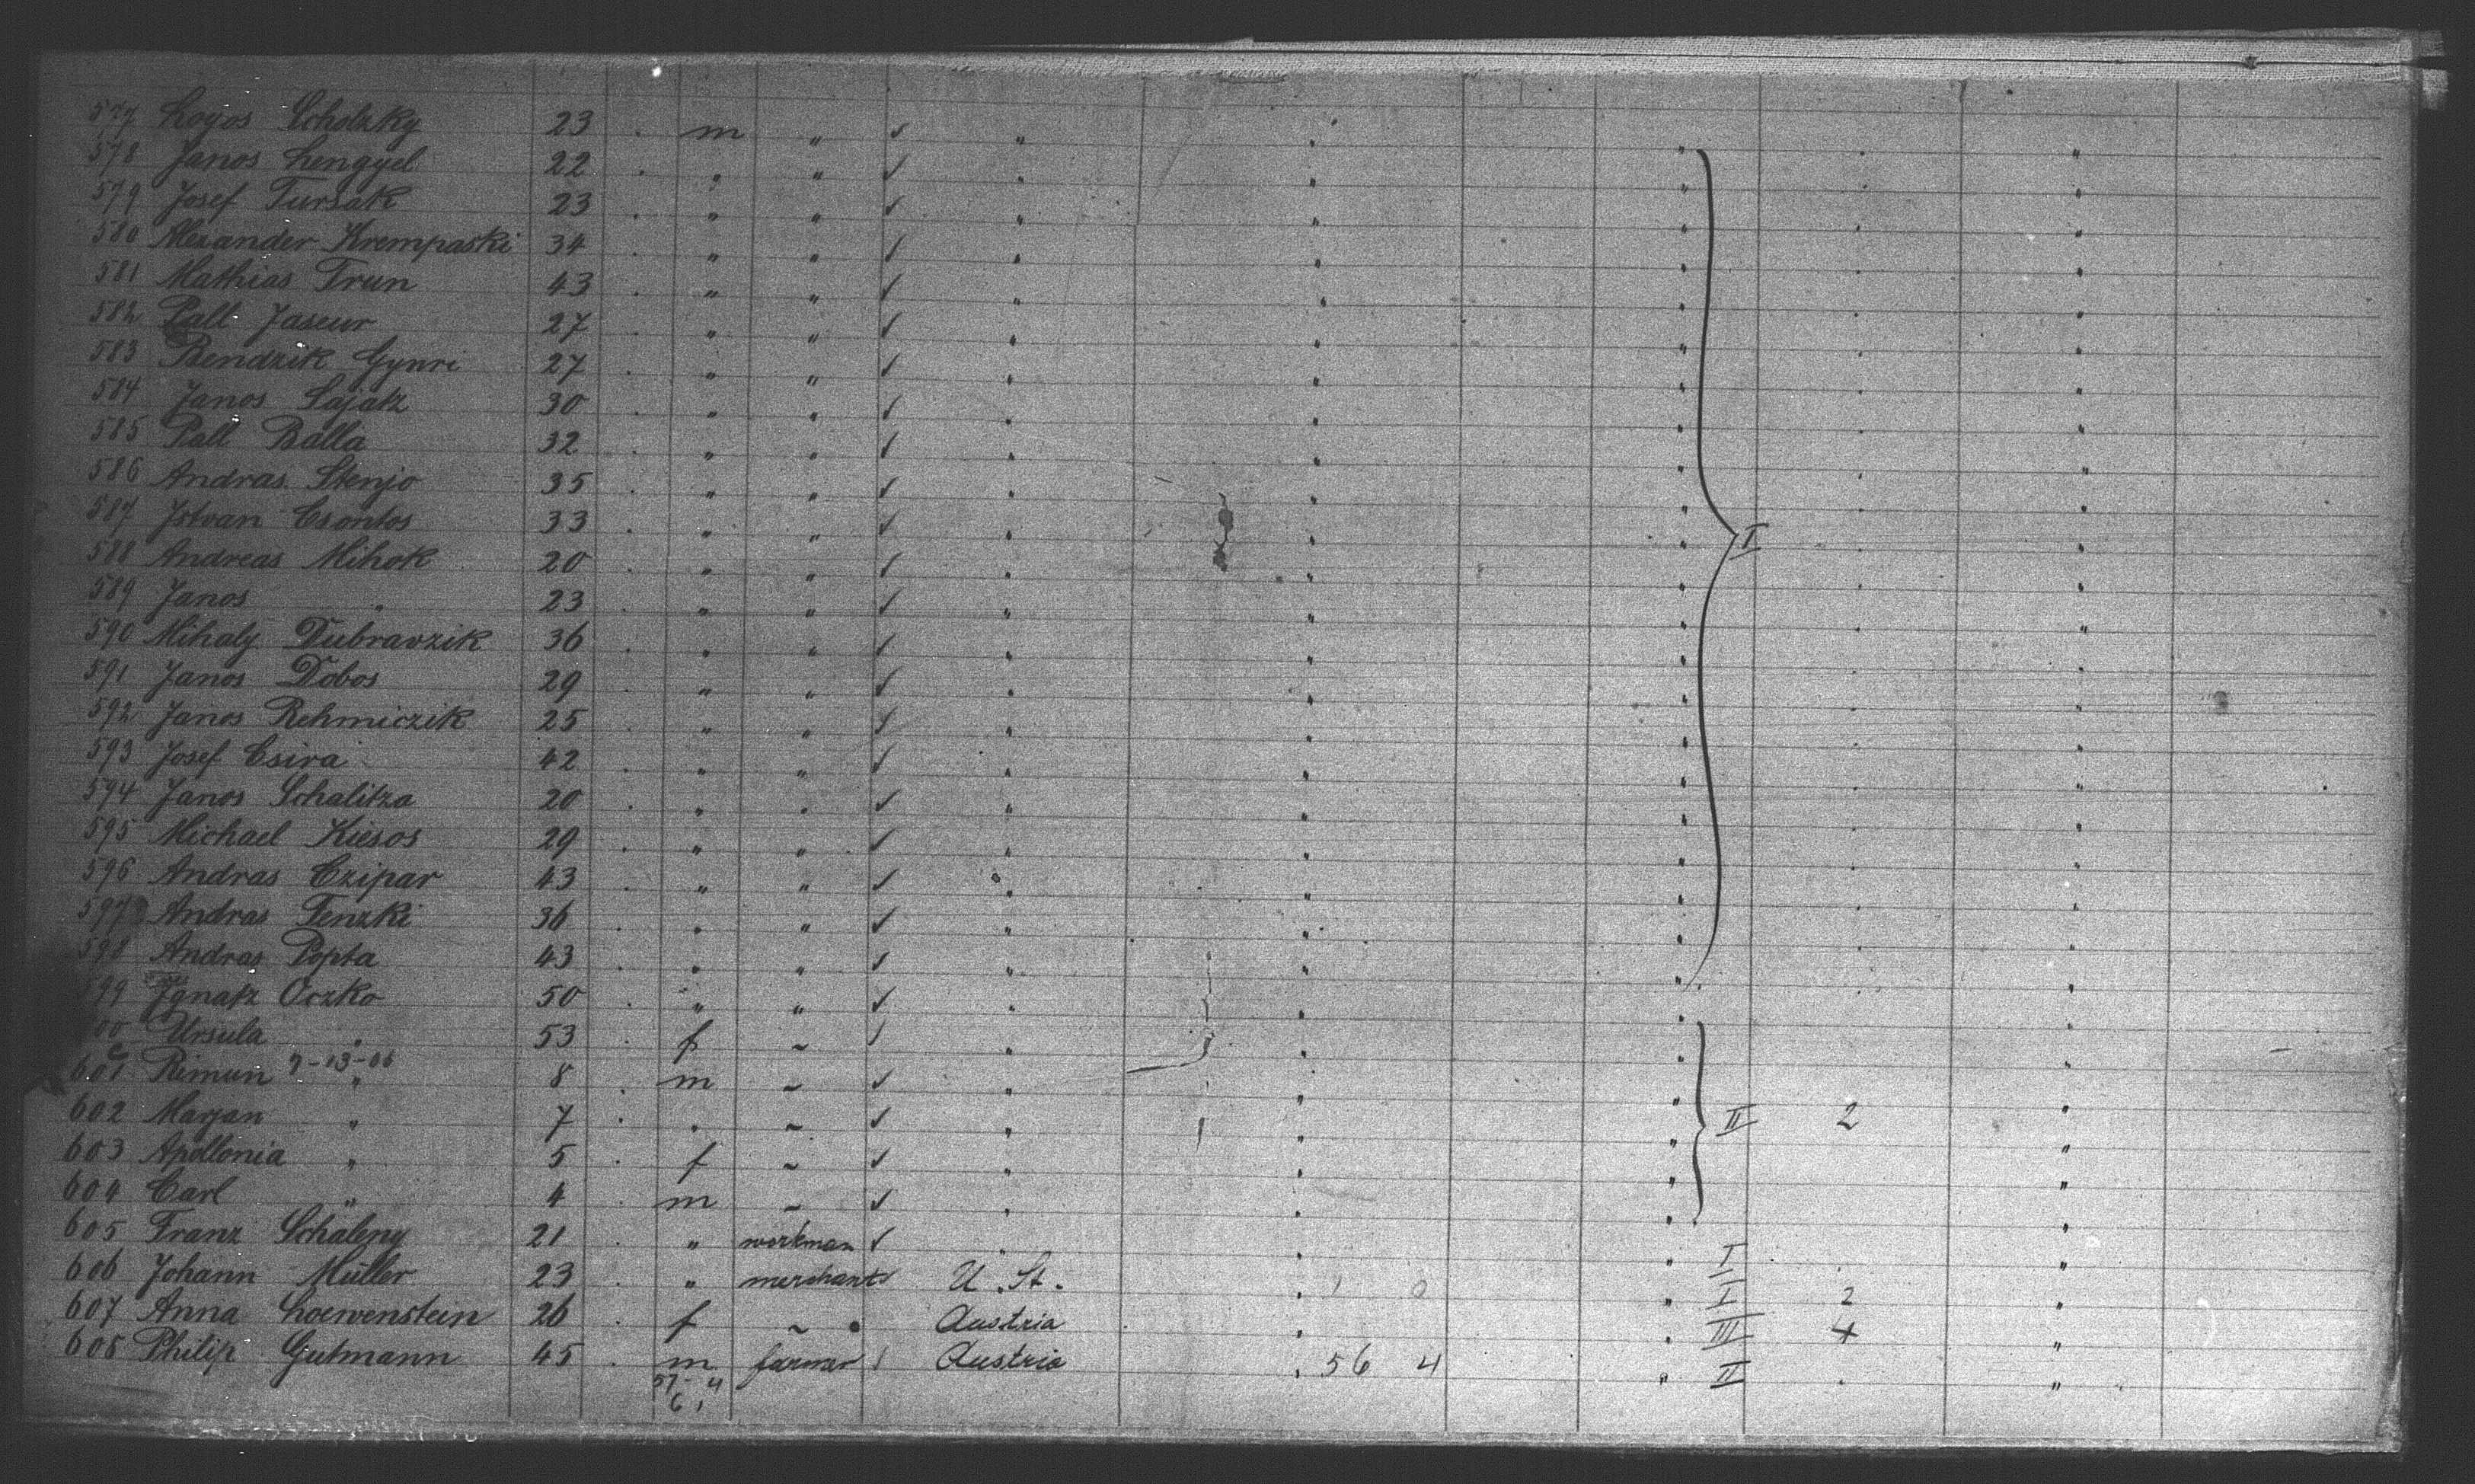 577 Loyos Scholzky 23 . m " ✓ " " " . "
578 Janos Lengyel 22 . " " ✓ " " " . "
579 Josef Tursak 23 . " " ✓ " " " . "
580 Alexander Krempaski 34 . " " ✓ " " " . "
581 Mathias Trun 43 . " " ✓ " " " . "
582 Pall Jaseur 27 . " " ✓ " " " . "
583 Bendzik Gyuri 27 . " " ✓ " " " . "
584 Janos Sajatz 30 . " " ✓ " " " . "
585 Pall Balla 32 . " " ✓ " " " . "
586 Andras Stenjo 35 . " " ✓ " " " . "
587 Istvan Csontos 33 . " " ✓ " " " I . "
588 Andreas Mihok 20 . " " ✓ " " " . "
589 Janos " 23 . " " ✓ " " " . "
590 Mihaly Dubravzik 36 . " " ✓ " " " . "
591 Janos Dobos 29 . " " ✓ " " " . "
592 Janos Rehmiczik 25 . " " ✓ " " " . "
593 Josef Csira 42 . " " ✓ " " " . "
594 Janos Schalitza 20 . " " ✓ " " " . "
595 Michael Kiesos 29 . " " ✓ " " " . "
596 Andras Czipar 43 . " " ✓ " " " . "
597 Andras Tenzki 36 . " " ✓ " " " . "
598 Andras Popta 43 . " " ✓ " " " . "
599 Ignatz Oczko 50 . " " ✓ " " " . "
600 Ursula " 53 . f ~ ✓ " " " "
601 Rimun 7-13-06 " 8 . m ~ ✓ " " " "
602 Marjan " 7 . " ~ ✓ " " " II 2 "
603 Apollonia " 5 . f ~ ✓ " " " "
604 Carl " 4 . m ~ ✓ " " " "
605 Franz Schaleny 21 . " workman ✓ " " " I . "
606 Johann Müller 23 . " merchant ✓ U. St. " 1 0 " I 2 "
607 Anna Loewenstein 26 . f ~ Austria " " III 4 "
608 Philip Gutmann 45 . m farmer ✓ Austria " 56 4 " II . "
57- 4
6 1